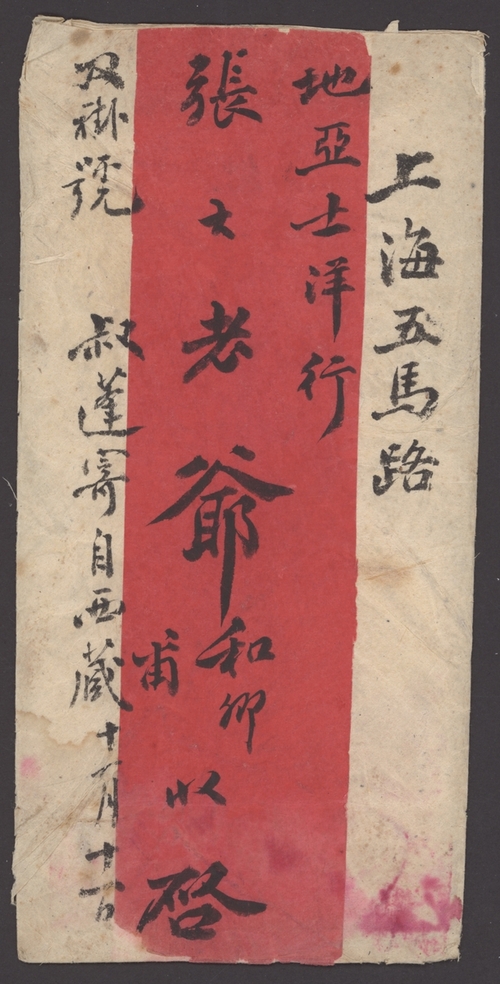 上海五馬路
地亞士洋行
張大老爺和卿甫收啓
双掛號 叔蓬寄自西藏十一月十一日